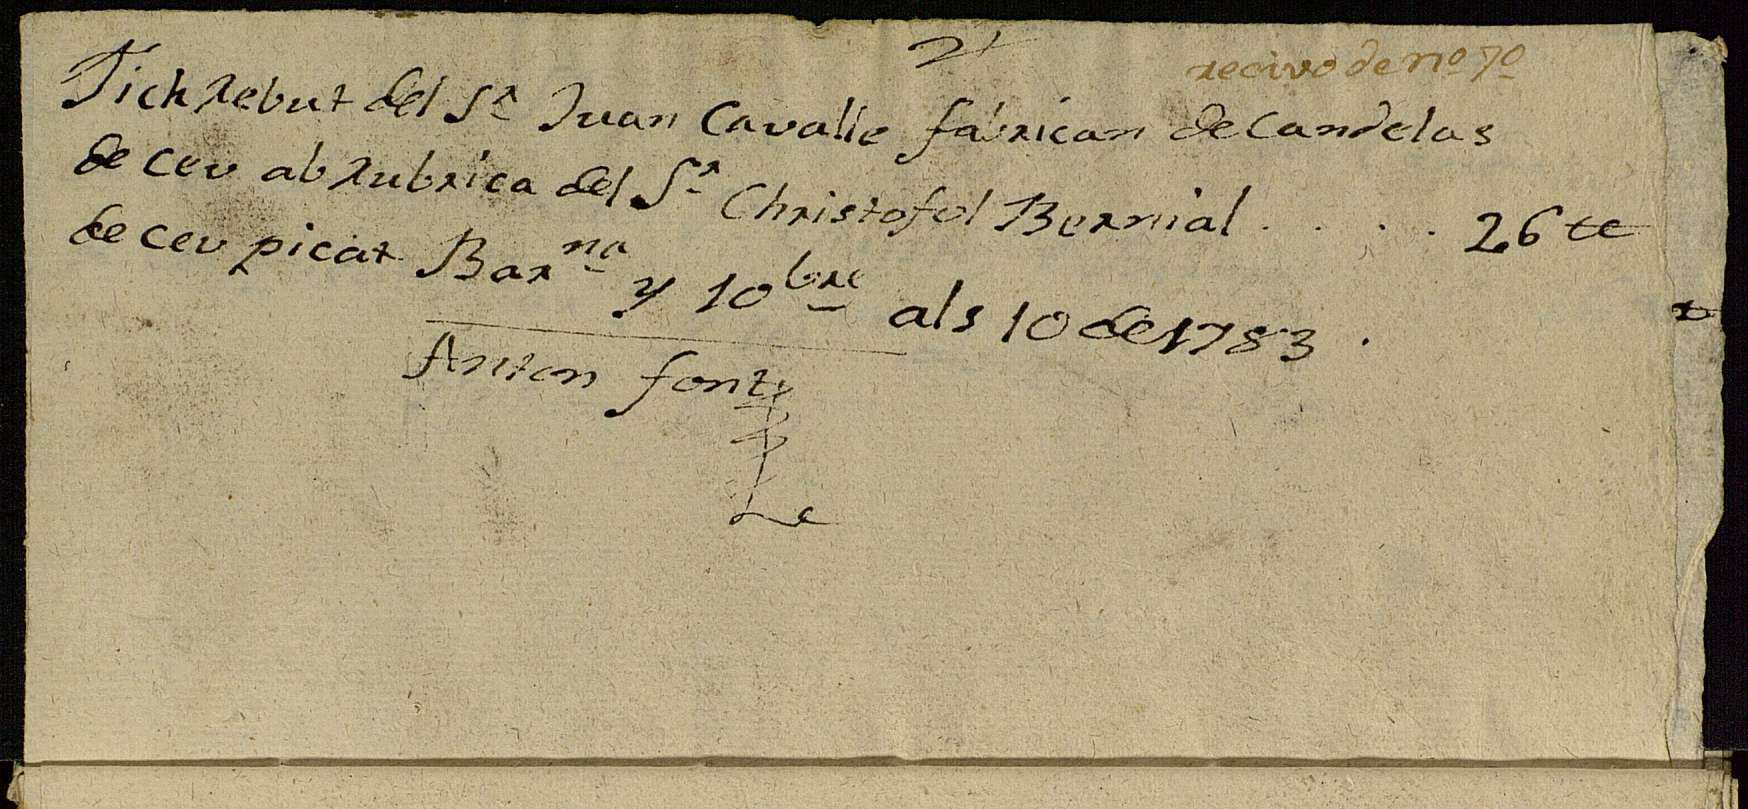 recivo de nº 70
Tich Rebut del Sr Juan Cavalle fabrican de Candelas
de Ceu ab Rubrica del Sr Christofol Bernial . . . . 26 tt
de Ceu picat Barna y 10bre als 10 de 1783.
Anton font